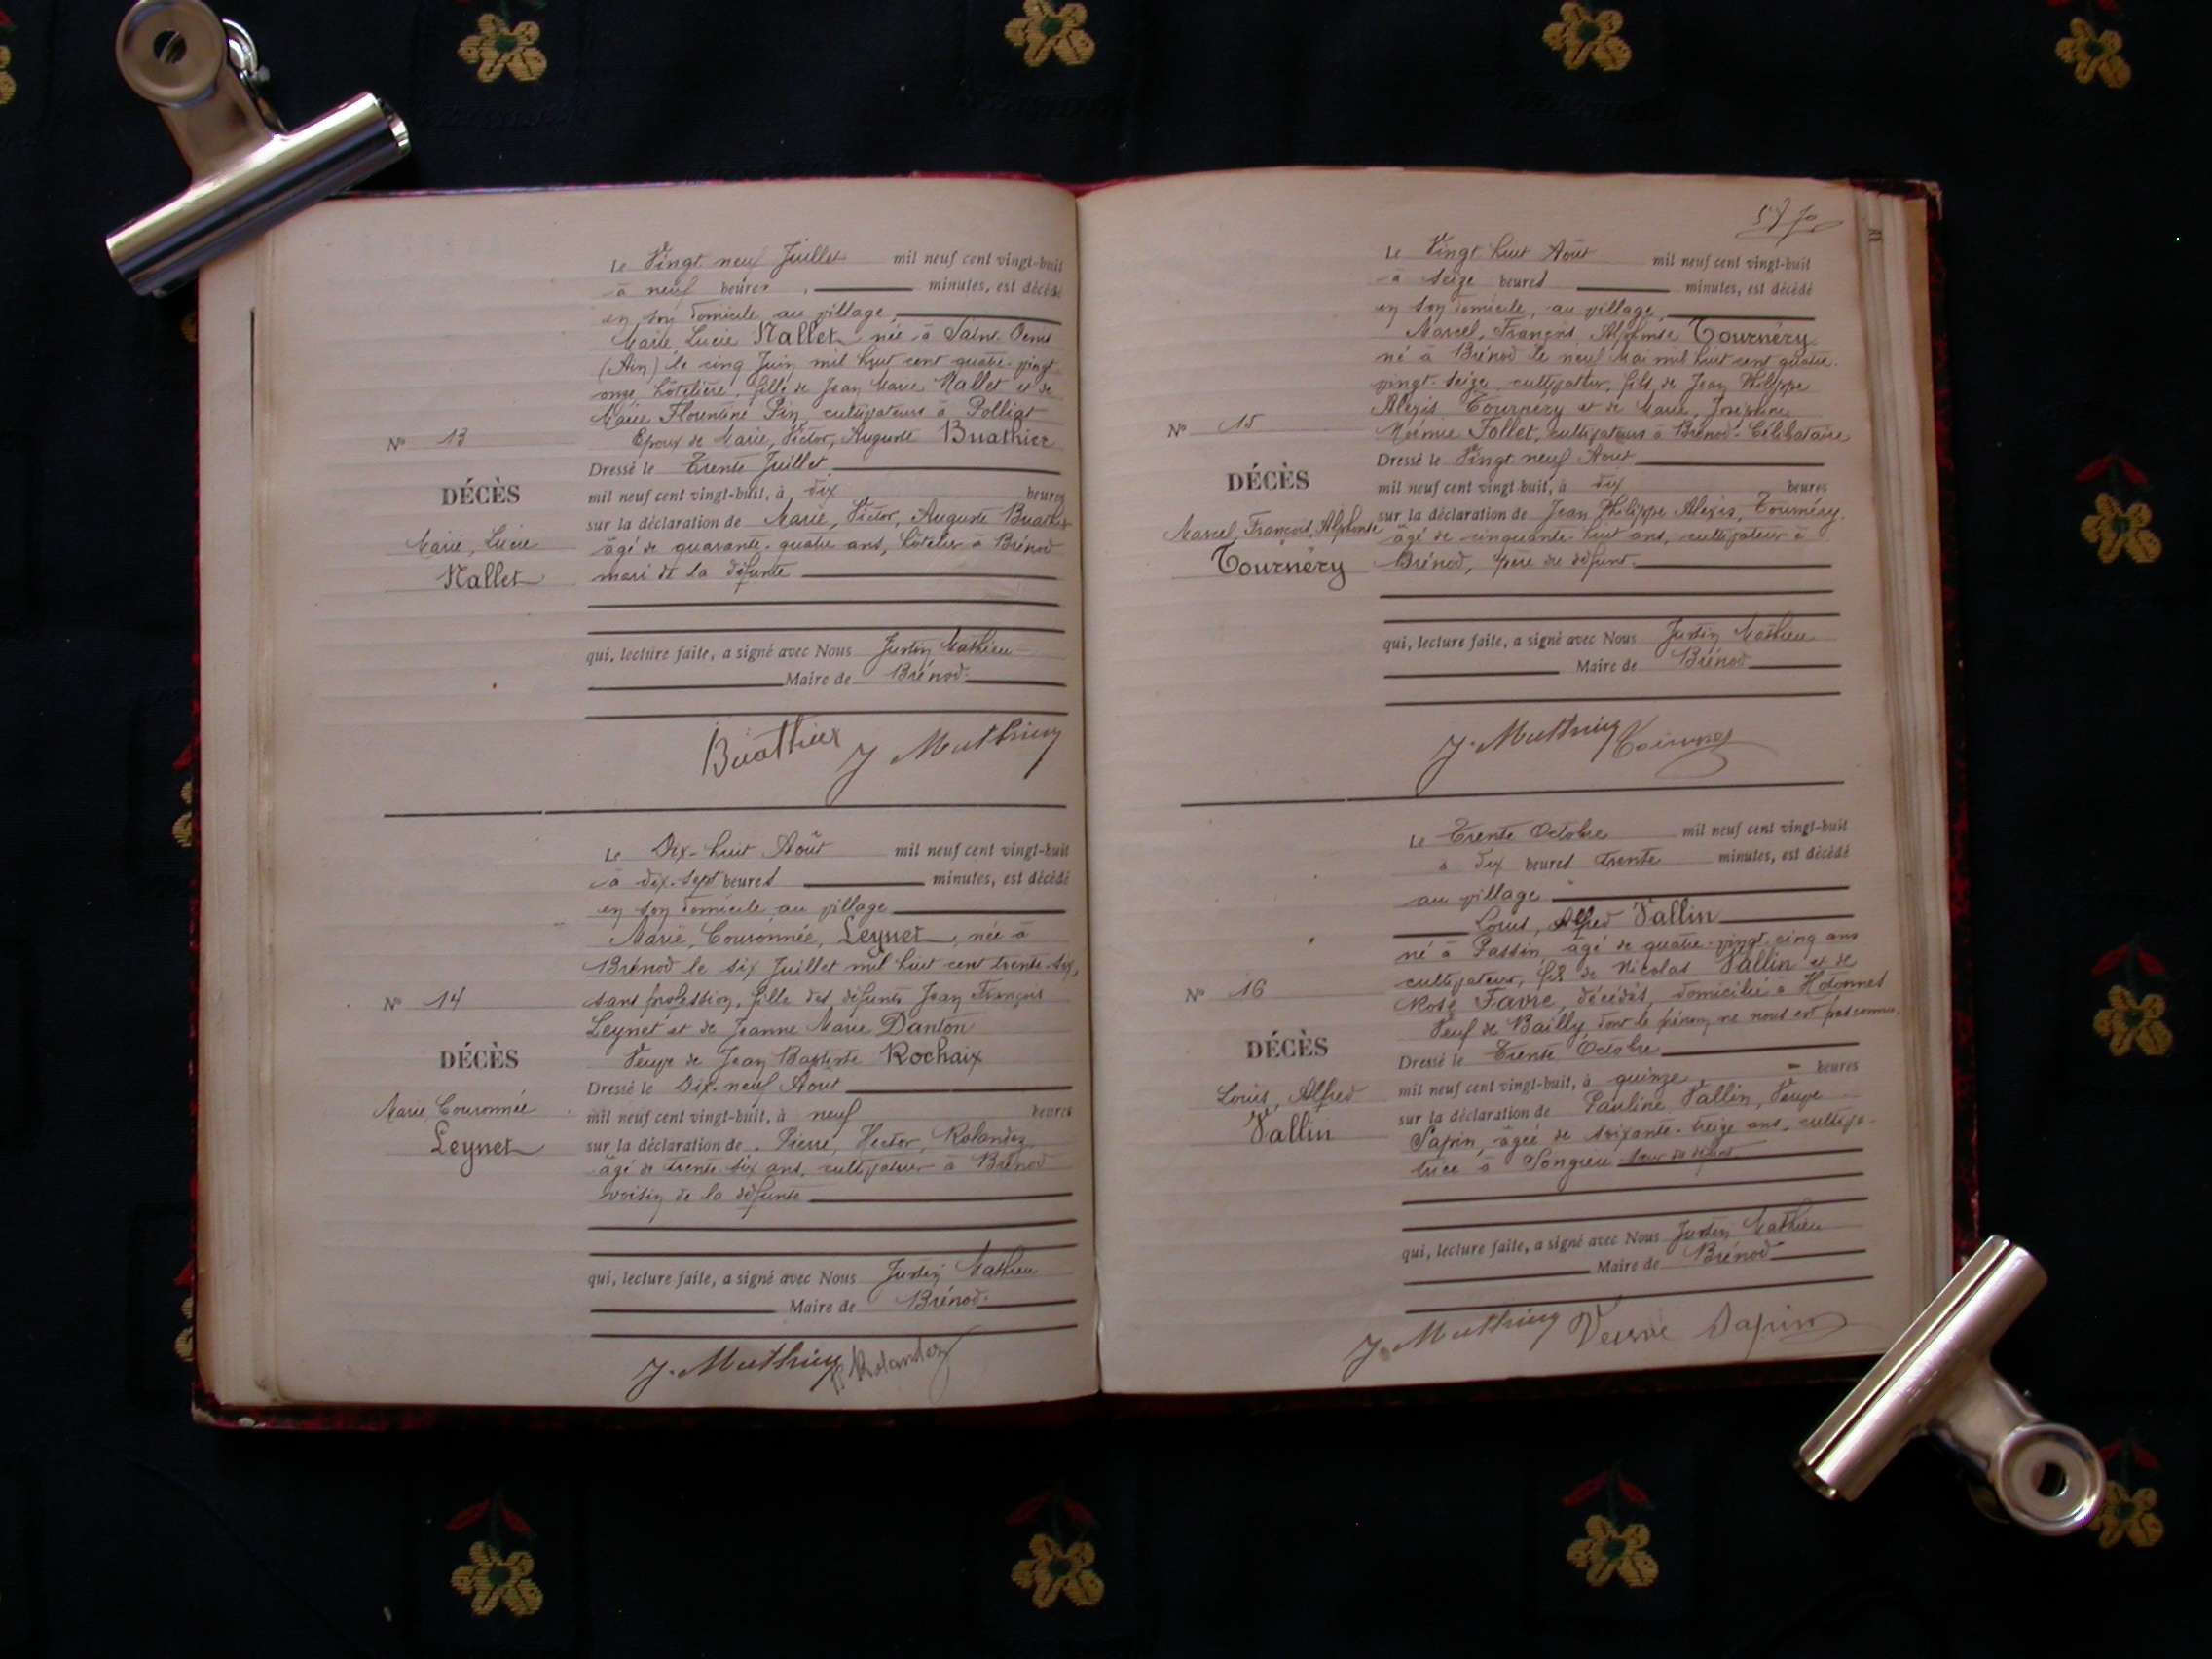 Le Vingt neuf Juillet mil neuf cent vingt-huit
à neuf heures minutes, est décédé
en son domicile au village,
Marie Lucie Nallet née à Saint Denis
(Ain) le cinq Juin mil huit cent quatre-vingt
onze hôtelière, fille de Jean Marie Nallet et de
Marie Florentine Pin cultivateurs à Polliat
Epoux de Marie, Victor, Auguste Buathier
N° 13
DÉCÈS
Marie, Lucie
Nallet
Dressé le Trente Juillet
mil neuf cent vingt-huit, à dix heures
sur la déclaration de Marie, Victor, Auguste Buathier
âgé de quarante-quatre ans, hôtelier à Brénod
mari de la défunte
qui, lecture faite, a signé avec Nous Justin Mathieu
Maire de Brénod
Buathier J Mathieu
Le Dix-huit Août mil neuf cent vingt-huit
à dix-sept heures minutes, est décédé
en son domicile au village
Marie, Couronnée, Leynet, née à
Brénod le six Juillet mil huit cent trente-six,
sans profession, fille des défunts Jean François
Leynet et de Jeanne Marie Danton
Veuve de Jean Baptiste Rochaix
N° 14
DÉCÈS
Marie Couronnée
Leynet
Dressé le Dix-neuf Août
mil neuf cent vingt-huit, à neuf heures
sur la déclaration de Pierre, Hector, Rolandez
âgé de trente six ans, cultivateur à Brénod
voisin de la défunte
qui, lecture faite, a signé avec Nous Justin Mathieu
Maire de Brénod
J. Mathieu Rolandez
Le Vingt huit Août mil neuf cent vingt-huit
à seize heures minutes, est décédé
en son domicile, au village,
Marcel, François, Alphonse Tournéry
né à Brénod le neuf Mai mil huit cent quatre-
vingt-seize cultivateur, fils de Jean Philippe
Alexis Tournéry et de Marie, Joséphine,
Noémie Follet, cultivateurs à Brénod. Célibataire
N° 15
DÉCÈS
Marcel, François, Alphonse
Tournéry
Dressé le Vingt neuf Août
mil neuf cent vingt-huit, à dix heures
sur la déclaration de Jean Philippe Alexis, Tournéry,
âgé de cinquante-huit ans, cultivateur à
Brénod, père du défunt.
qui, lecture faite, a signé avec Nous Justin Mathieu
Maire de Brénod
J. Mathieu
Le Trente Octobre mil neuf cent vingt-huit
à dix heures trente minutes, est décédé
au village
Louis, Alfred Vallin
né à Passin, âgé de quatre-vingt-cinq ans
cultivateur, fils de Nicolas Vallin et de
Rose Favre, décédés, domicilié à Hotonnes
Veuf de Bailly dont le prénom ne nous est pas connu.
N° 16
DÉCÈS
Louis, Alfred
Vallin
Dressé le Trente Octobre
mil neuf cent vingt-huit, à quinze heures
sur la déclaration de Pauline Vallin, Veuve
Sapin, âgée de soixante-treize ans, cultiva-
trice à Songieu sœur du défunt
qui, lecture faite, a signé avec Nous Justin Mathieu
Maire de Brénod
J. Mathieu Veuve Sapin